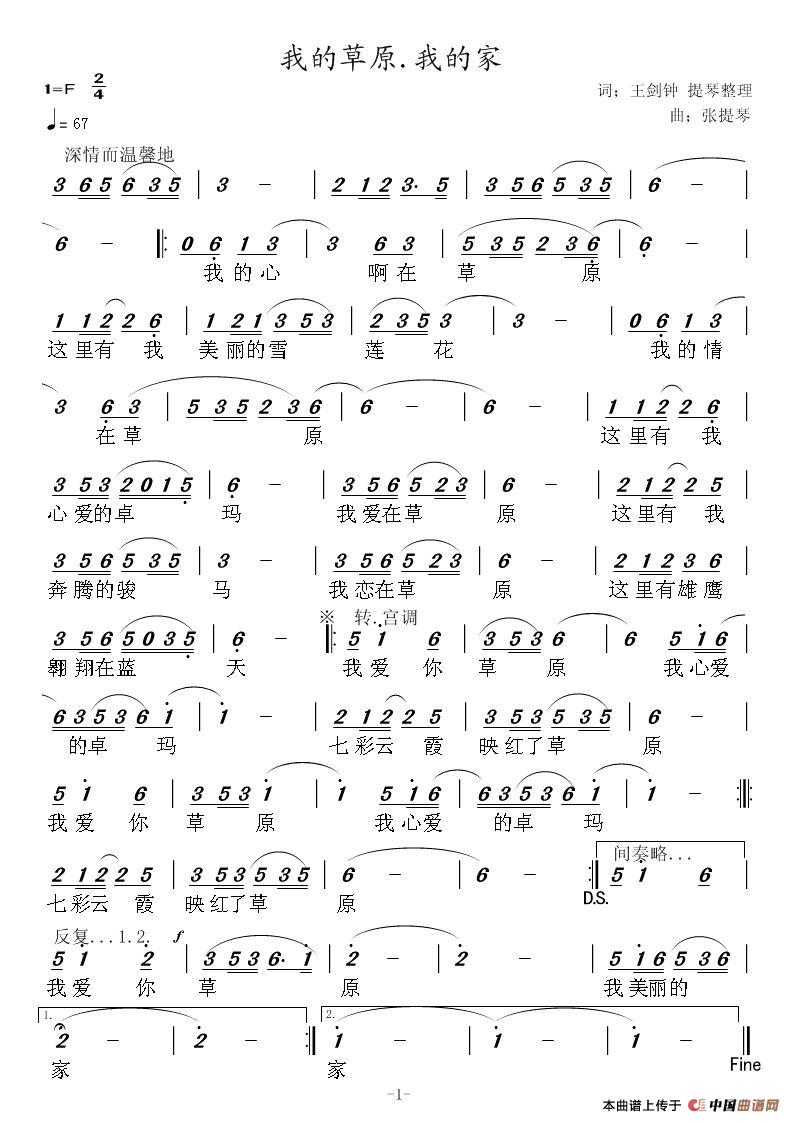 我的草原.我的家
1=F 2/4
词；王剑钟 提琴整理
曲；张提琴
♩= 67
深情而温馨地
3 6 5 6 3 5 | 3 － | 2 1 2 3· 5 | 3 5 6 5 3 5 | 6 － |
6 － ‖: 0 6 1 3 | 3 6 3 | 5 3 5 2 3 6 | 6 － |
我 的 心 啊 在 草 原
1 1 2 2 6 | 1 2 1 3 5 3 | 2 3 5 3 | 3 － | 0 6 1 3 |
这 里 有 我 美 丽 的 雪 莲 花 我 的 情
3 6 3 | 5 3 5 2 3 6 | 6 － | 6 － | 1 1 2 2 6 |
在 草 原 这 里 有 我
3 5 3 2 0 1 5 | 6 － | 3 5 6 5 2 3 | 6 － | 2 1 2 2 5 |
心 爱 的 卓 玛 我 爱 在 草 原 这 里 有 我
3 5 6 5 3 5 | 3 － | 3 5 6 5 2 3 | 6 － | 2 1 2 3 6 |
奔 腾 的 骏 马 我 恋 在 草 原 这 里 有 雄 鹰
※ 转.宫调
3 5 6 5 0 3 5 | 6 － ‖: 5 1 6 | 3 5 3 6 | 6 5 1 6 |
翱 翔 在 蓝 天 我 爱 你 草 原 我 心 爱
6 3 5 3 6 1 | 1 － | 2 1 2 2 5 | 3 5 3 5 3 5 | 6 － |
的 卓 玛 七 彩 云 霞 映 红 了 草 原
5 1 6 | 3 5 3 1 | 1 5 1 6 | 6 3 5 3 6 1 | 1 － :‖
我 爱 你 草 原 我 心 爱 的 卓 玛
间奏略...
2 1 2 2 5 | 3 5 3 5 3 5 | 6 － | 6 － :‖ 5 1 6 |
D.S.
七 彩 云 霞 映 红 了 草 原
反复...1.2. f
5 1 2 | 3 5 3 6· 1 | 2 － | 2 － | 5 1 6 5 3 6 |
我 爱 你 草 原 我 美 丽 的
1. 2.
2 － | 2 － :‖ 1 － | 1 － | 1 － ‖
家 家
Fine
-1-
本曲谱上传于 中国曲谱网